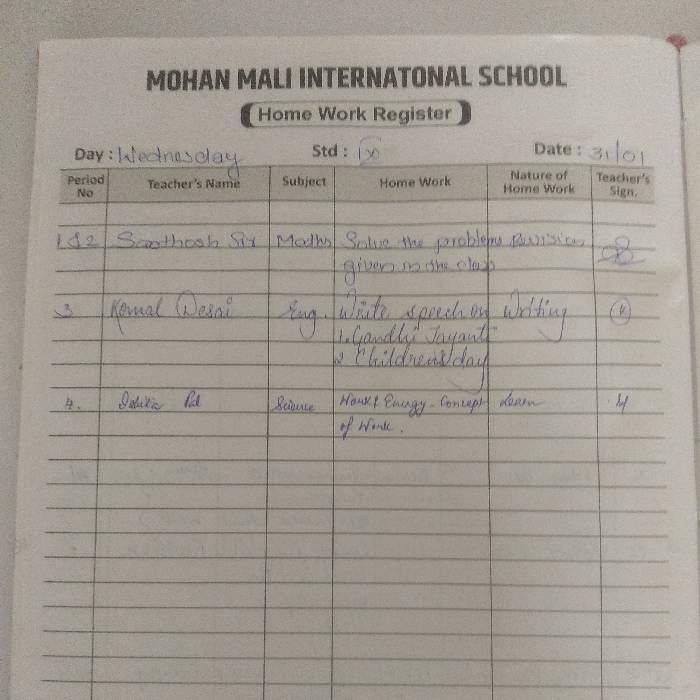 MOHAN MALI INTERNATONAL SCHOOL
Home Work Register
Day : Wednesday Std : IX Date : 31/01
Period No Teacher's Name Subject Home Work Nature of Home Work Teacher's Sign.
1 & 2 Santhosh Sir Maths Solve the problems Revision
given in the class
3 Komal Desai Eng. Write speech on Writing
1. Gandhi Jayanti
2 Childrens day
4. Science Work & Energy - Concept Learn
of Work.